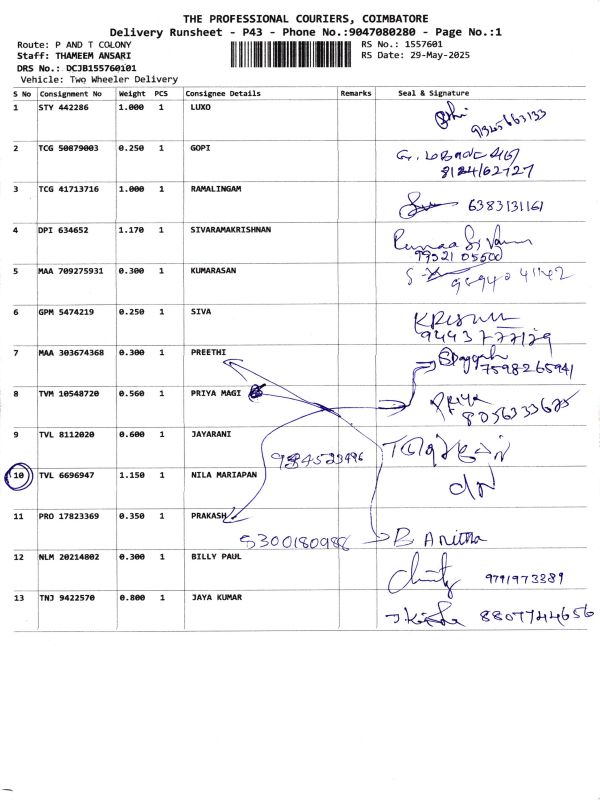 THE PROFESSIONAL COURIERS, COIMBATORE
Delivery Runsheet - P43 - Phone No.:9047080280 - Page No.:1
Route: P AND T COLONY
Staff: THAMEEM ANSARI
DRS No.: DCJB155760101
Vehicle: Two Wheeler Delivery
RS No.: 1557601
RS Date: 29-May-2025
S No Consignment No Weight PCS Consignee Details Remarks Seal & Signature
1 STY 442286 1.000 1 LUXO
9345663133
2 TCG 50879003 0.250 1 GOPI
8124162727
3 TCG 41713716 1.000 1 RAMALINGAM 6383131161
4 DPI 634652 1.170 1 SIVARAMAKRISHNAN
99521 05500
5 MAA 709275931 0.300 1 KUMARASAN
6 GPM 5474219 0.250 1 SIVA
9443777129
7 MAA 303674368 0.300 1 PREETHI
7598265941
8 TVM 10548720 0.560 1 PRIYA MAGI Priya
8056333675
9 TVL 8112020 0.600 1 JAYARANI
10 TVL 6696947 1.150 1 NILA MARIAPAN
11 PRO 17823369 0.350 1 PRAKASH
8300180988 B Anitha
12 NLM 20214802 0.300 1 BILLY PAUL
9791973389
13 TNJ 9422570 0.800 1 JAYA KUMAR
8807744656